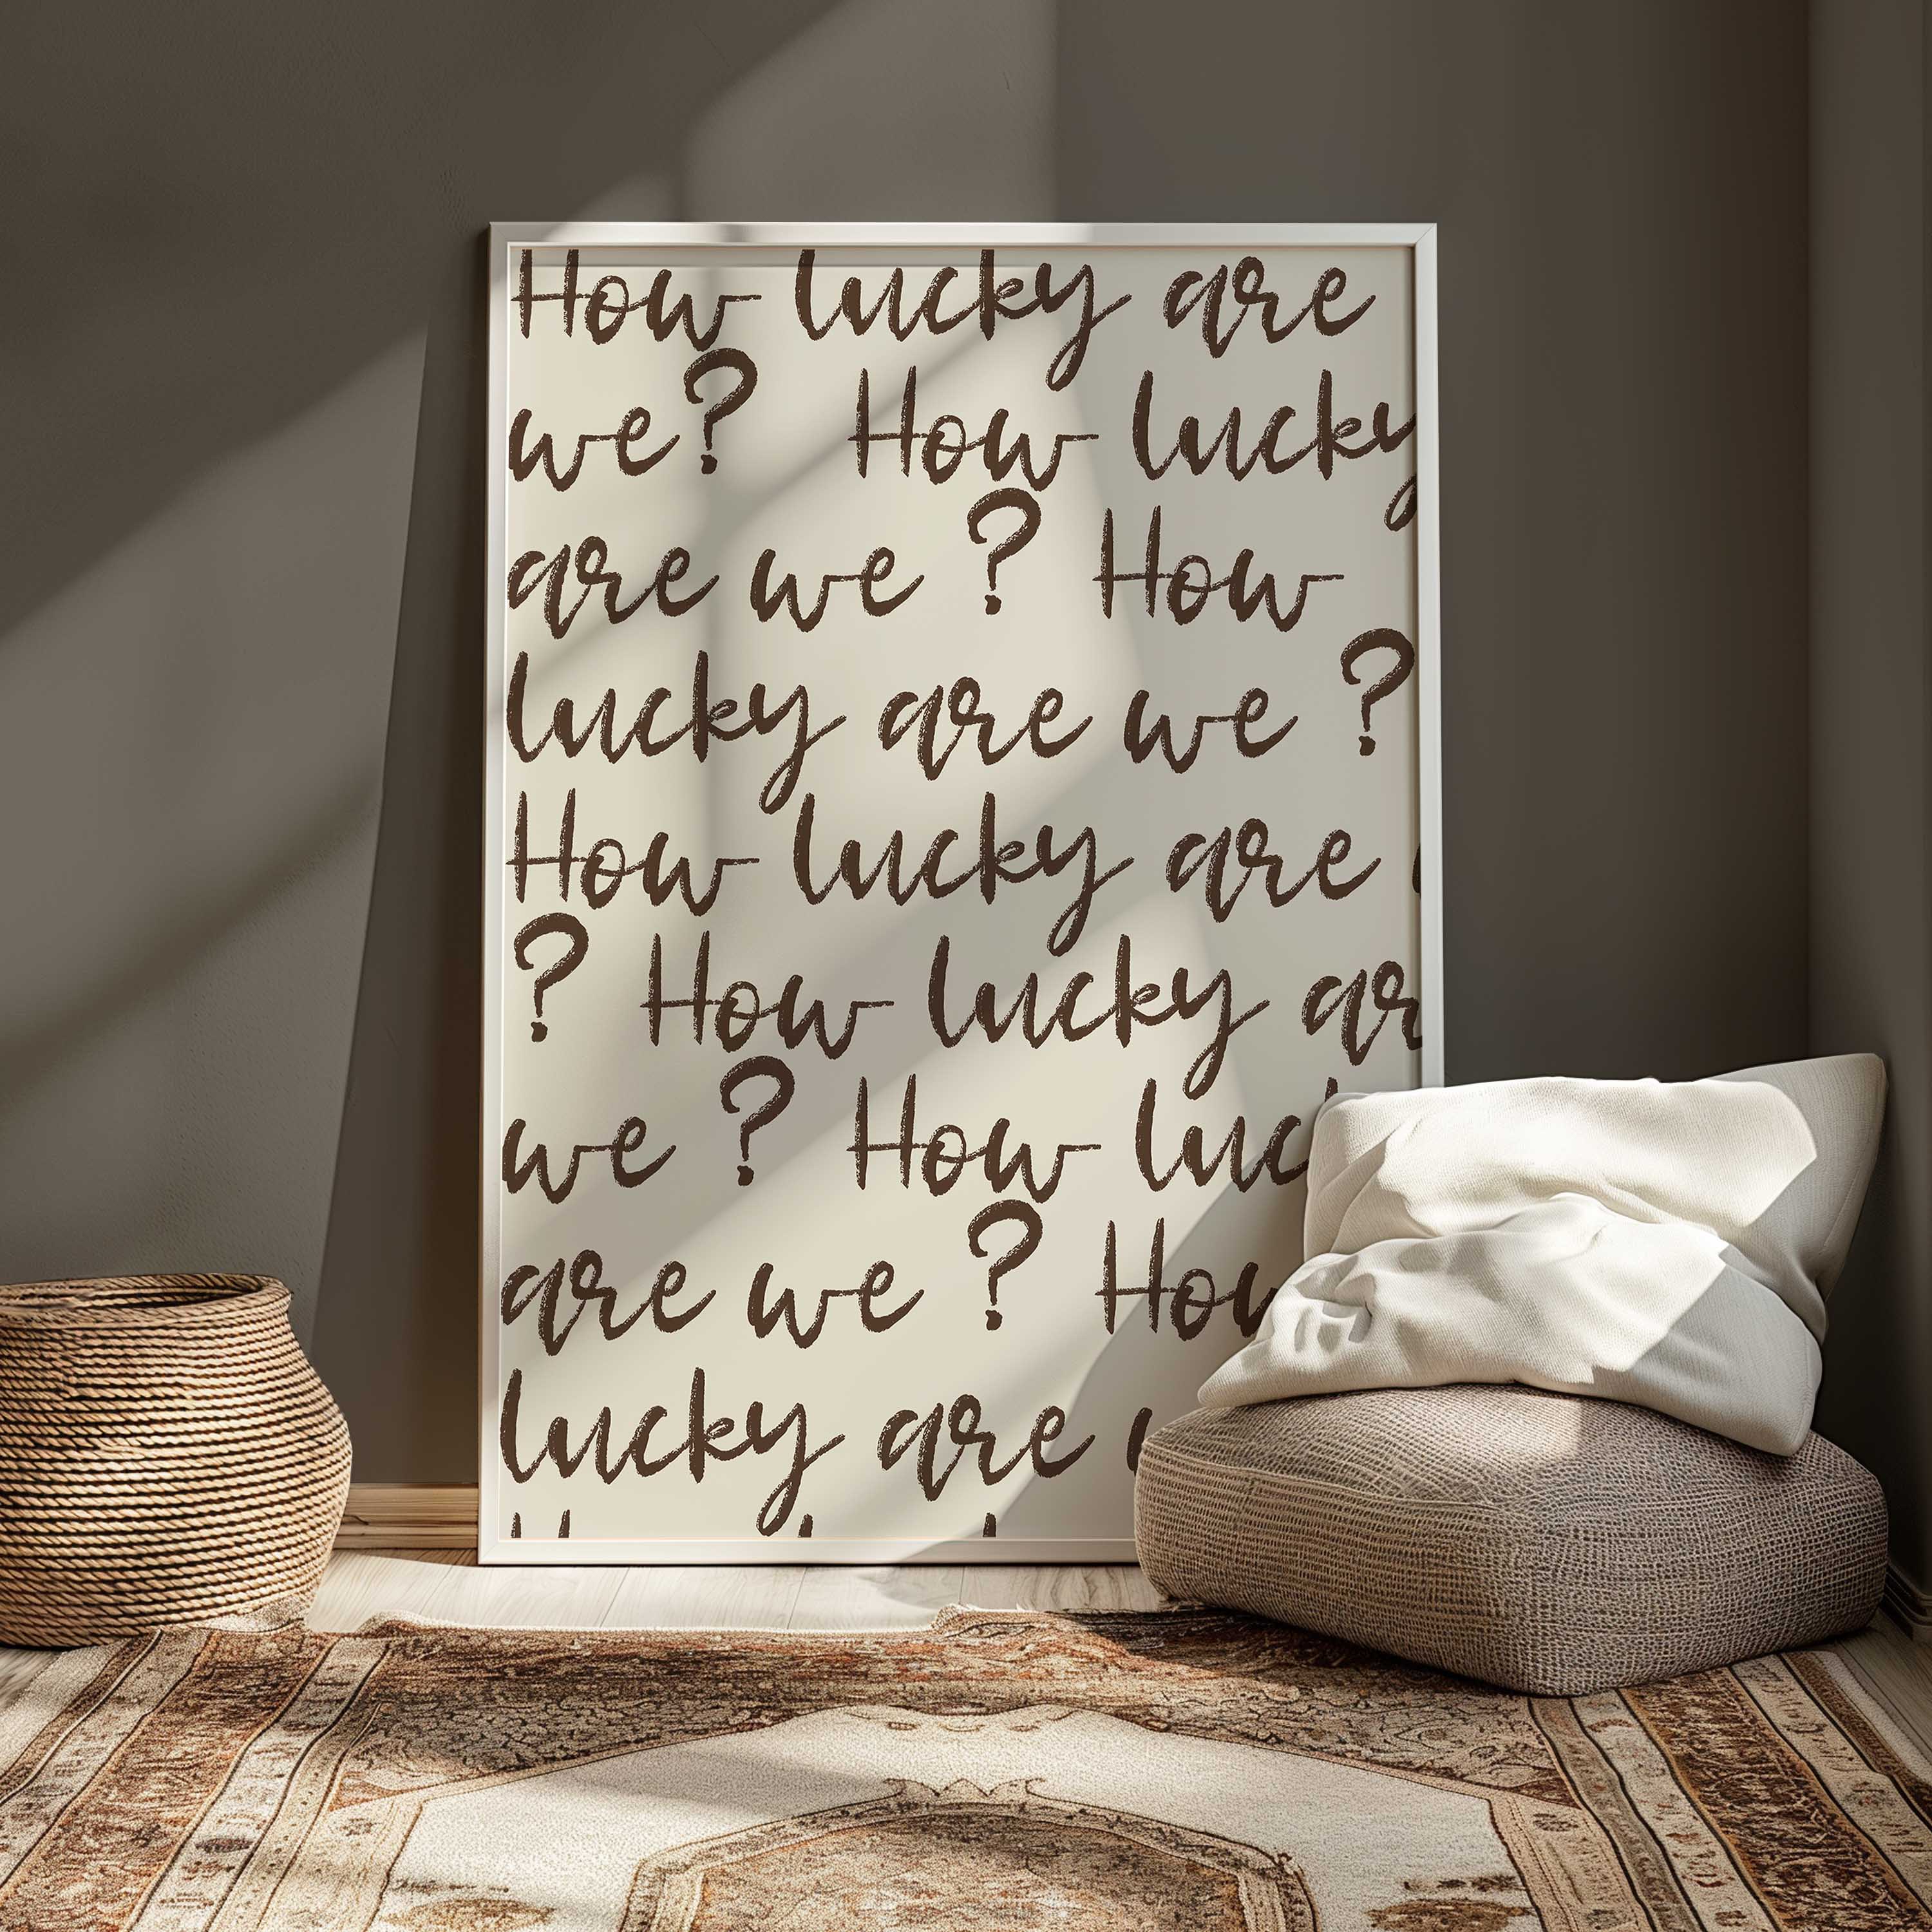 How lucky are
we? How lucky
are we ? How
lucky are we ?
How lucky are
? How lucky ar
we ? How luc
are we ? How
lucky are